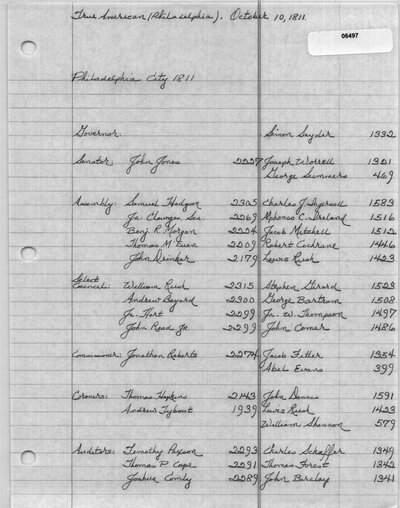 True American (Philadelphia). October 10, 1811.
06497
Philadelphia City 1811
Governor: Simon Snyder 1332
Senator: John Jones 2227 Joseph Worrell 1301
George Summers 469
Assembly: Samuel Hodgson 2305 Charles J. Ingersoll 1583
Ja. Clawges, Sen. 2269 Alphonso C. Ireland 1516
Benj. R. Morgan 2224 Jacob Mitchell 1512
Thomas M'Euen 2209 Robert Cochrane 1446
John Drinker 2179 Lewis Rush 1423
Select
Council: William Rush 2315 Stephen Girard 1523
Andrew Bayard 2300 George Bartram 1508
Ja. Hart 2299 Ja. W. Thompson 1497
John Read Jr. 2299 John Comar 1486
Commissioner: Jonathan Roberts 2274 Jacob Fitler 1354
Abel Evans 399
Coroners: Thomas Hopkins 2143 John Dennis 1591
Andrew Tybout 1939 Lewis Rush 1423
William Shannon 579
Auditors: Timothy Paxson 2293 Charles Schaffer 1349
Thomas P. Cope 2291 Thomas Forest 1342
Joshua Comly 2289 John Barclay 1341